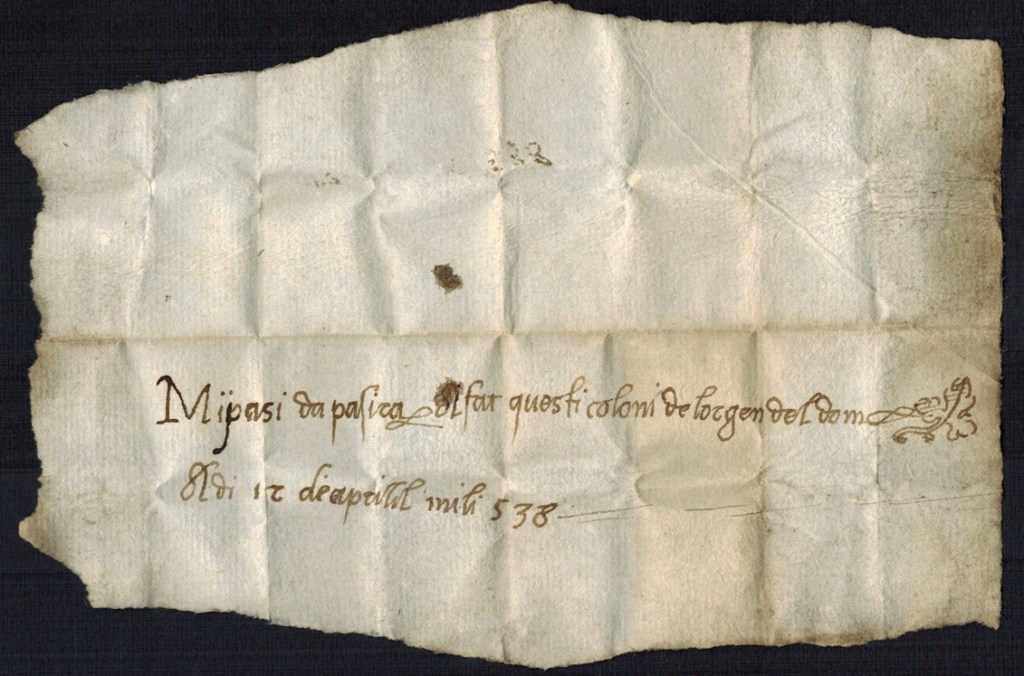 Mi pasi da pasira di far questi coloni de lorgen del dom
Adi 12 de aprillil mili 538